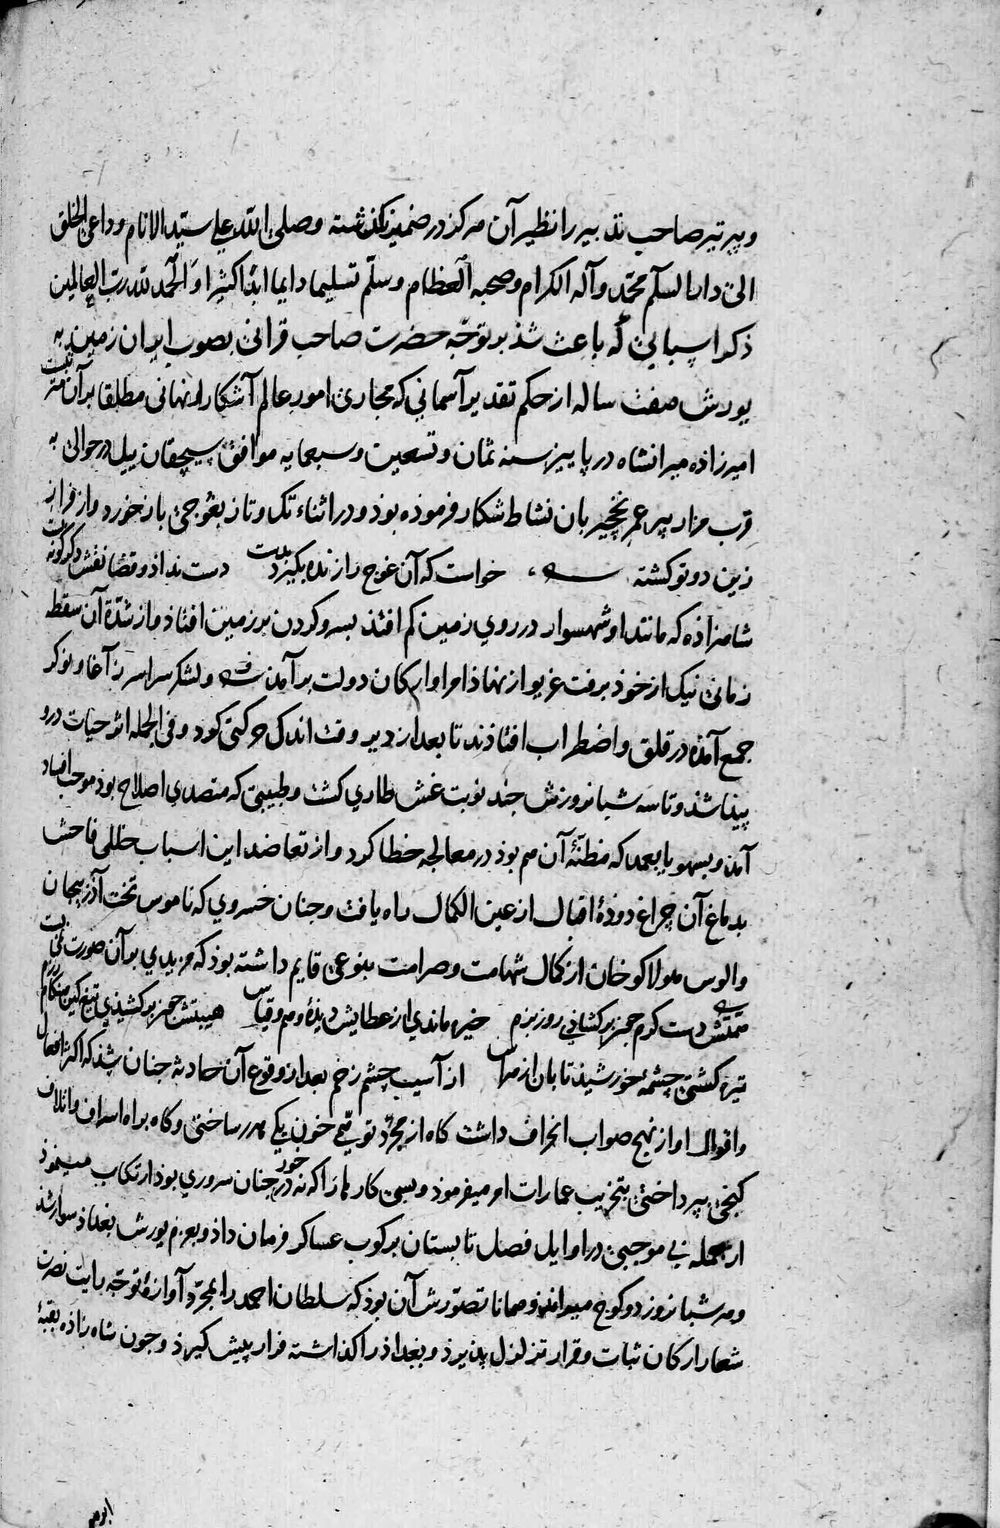 وپیر تیر صاحب تدبیر را نظیر آن مرکز در ضمیر نکذشته وصلی الله علی سید الانام وداعی الخلق
الی دار السلم محمد وآله الکرام وصحبه العظام وسلم تسلیما دایما ابدا کثیرا والحمد لله رب العالمین
ذکر اسبابی که باعث شذ بر توجه حضرت صاحب قرانی بصوب ایران زمین به
یورش هفت ساله از حکم تقدیر آسمانی که مجاری امور عالم آشکارا ونهانی مطلقا بر آن مترتبست
امیرزاده میرانشاه در پاییز سنه ثمان وتسعین وسبعمایه موافق سیچقان ییل در حوالی به
قرب مزار پیر عمر نخچیربان نشاط شکار فرموده بوذ ودر اثناء تک وتاز بغوجی باز خورد واز فراز
زین دوتو کشته خواست که آن غوج را زنده بکیرد بدست دست نداذ وقضا نقش دکرکونه بست
شاهزاذه که مانند او شهسوار در روی زمین کم افتذ بسر وکردن بر زمین افتاذ واز شدة آن سقطه
زمانی نیک از خوذ برفت غریو از نهاذ امرا وارکان دولت برآمذ ولشکر سراسر ز آغا ونوکر
جمع آمذه در قلق واضطراب افتاذند تا بعد از دیر وقت اندک حرکتی کرد وفی الجمله اثر حیات درو
پیذا شذ وتا سه شبانروزش چند نوبت غش طاری کشت وطبیبی که متصدی اصلاح بوذ موجب افساد
آمذ وبسهو یا بعمد که مظنّهٔ آن هم بوذ در معالجه خطا کرد واز تعاضد این اسباب خللی فاحش
بدماغ آن چراغ دودهٔ اقبال از عین الکمال راه یافت وجنان خسروی که ناموس تخت آذربیجان
والوس هولاکو خان از کمال شهامت وصرامت بنوعی قایم داشته بوذ که مزیدی بر آن صورت نمی بست
همتش دست کرم چون برکشاذی روز بزم خیره ماندی از عطایش دیذهٔ وهم وقیاس هیبتش چون برکشیذی تیغ کین هنکام رزم
تیره کشتی چشمهٔ خورشیذ تابان از هراس از آسیب چشم زخم بعد از وقوع آن حادثه جنان شذ که اکثر افعال
واقوال او از نهج صواب انحراف داشت کاه از مجرد توقعی خون یکی هدر ساختی وکاه براه اسراف واتلاف
کنجی بپرداختی بتخریب عمارات امر میفرموذ وبسی کارها را که نه در خور جنان سروری بوذ ارتکاب مینموذ
از جمله بی موجبی در اوایل فصل تابستان برکوب عساکر فرمان داذ وبعزم یورش بغداذ سوار شذ
وهر شبانروز دو کوچ میراند وهمانا تصورش آن بوذ که سلطان احمد را بمجرد آوازهٔ توجه رایت نصرت
شعار ارکان ثبات وقرار تزلزل پذیرد وبغداذ را کذاشته فرار پیش کیرذ وجون شاه زاذه بقبهٔ
ابرهیم